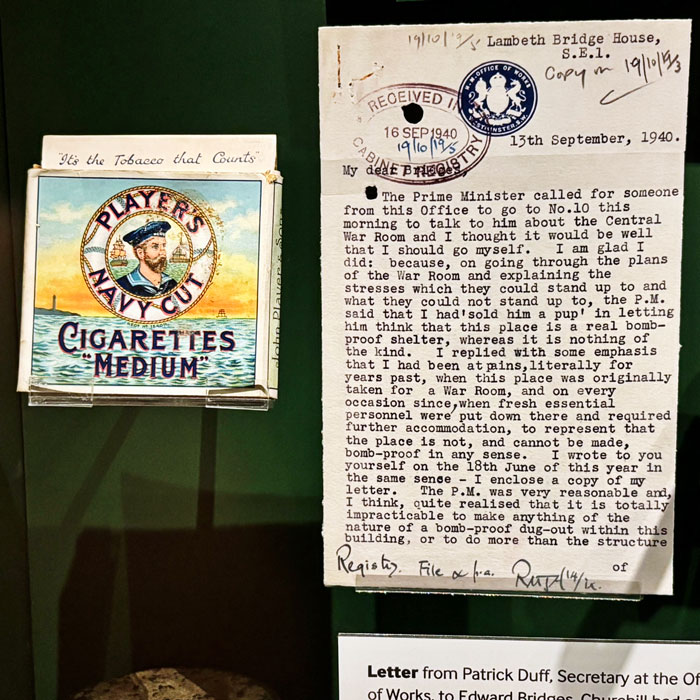 "It's the Tobacco that Counts"
PLAYER'S
NAVY CUT
CIGARETTES
"MEDIUM"
John Player & Sons
19/10/19/5
Lambeth Bridge House,
S.E.1.
Copy on 19/10/19/3
H.M. OFFICE OF WORKS
WESTMINSTER. S.W.
RECEIVED IN
16 SEP 1940
19/10/19/5
CABINET REGISTRY
13th September, 1940.
My dear Bridges,
The Prime Minister called for someone
from this Office to go to No.10 this
morning to talk to him about the Central
War Room and I thought it would be well
that I should go myself. I am glad I
did: because, on going through the plans
of the War Room and explaining the
stresses which they could stand up to and
what they could not stand up to, the P.M.
said that I had 'sold him a pup' in letting
him think that this place is a real bomb-
proof shelter, whereas it is nothing of
the kind. I replied with some emphasis
that I had been at pains, literally for
years past, when this place was originally
taken for a War Room, and on every
occasion since, when fresh essential
personnel were put down there and required
further accommodation, to represent that
the place is not, and cannot be made,
bomb-proof in any sense. I wrote to you
yourself on the 18th June of this year in
the same sense - I enclose a copy of my
letter. The P.M. was very reasonable and,
I think, quite realised that it is totally
impracticable to make anything of the
nature of a bomb-proof dug-out within this
building, or to do more than the structure
of
Registry. File & p.a.
Letter from Patrick Duff, Secretary at the Of
of Works, to Edward Bridges. Churchill had